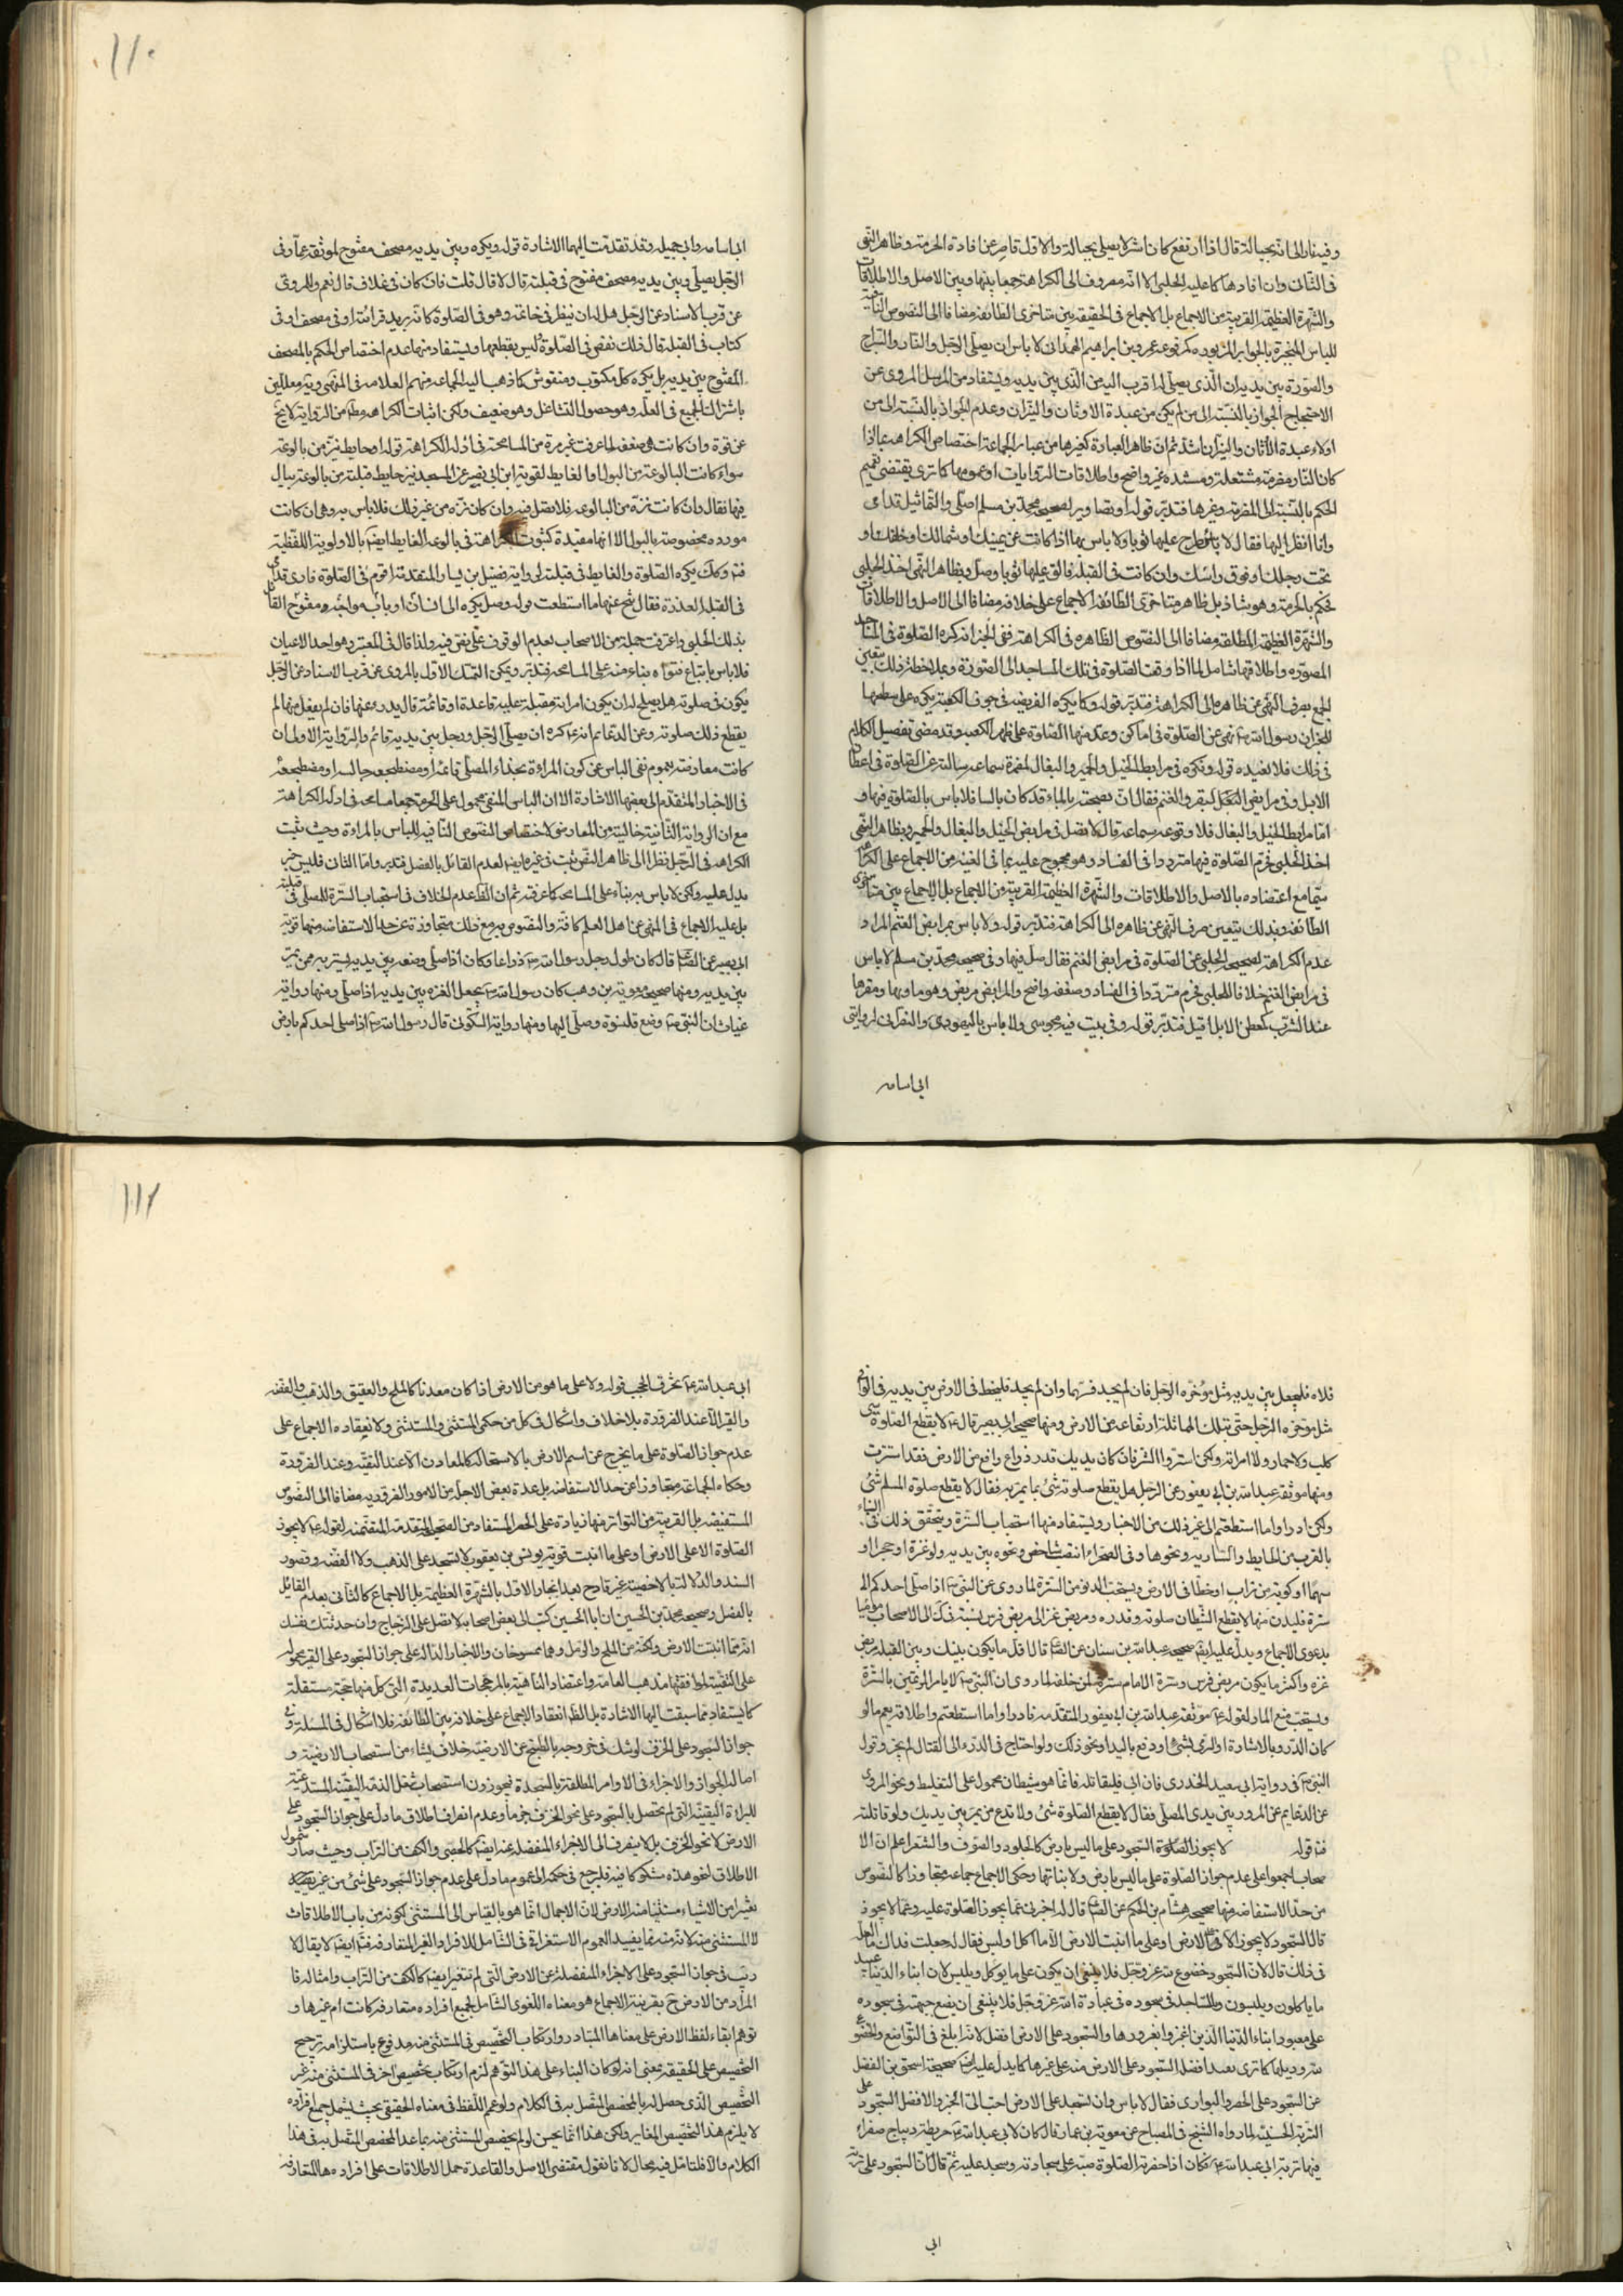 وفيه نار الى انه بحياله قال اذا ارتفع كان اشر لا يصلى بحياله والاول قاصر عن افادة الحرمة وظاهر النهى
فى الثانى وان افادها كما عليه الحلبى الا انه مصروف الى الكراهة جمعا بينها وبين الاصل والاطلاقات
والشهرة العظيمة القريبة من الاجماع بل الاجماع فى الحقيقة بين متاخرى الطائفة مضافا الى النصوص النافية
للباس المنجبرة بالجوابر المزبوره كمرفوعة عمرو بن ابراهيم الهمدانى لا باس ان يصلى الرجل والنار والسراج
والصورة بين يديه ان الذى يصلى له اقرب اليه من الذى بين يديه ويستفاد من المرسل المروى عن
الاحتجاج الجواز بالنسبة الى من لم يكن من عبدة الاوثان والنيران وعدم الجواز بالنسبة الى من
اولاد عبدة الاوثان والنيران ثم ان ظاهر العبارة كغيرها من عباير الجماعة اختصاص الكراهة بما اذا
كان النار مضرمة مشتعلة ومستنده غير واضح واطلاقات الروايات او عمومها كما ترى يقتضى تعميم
الحكم بالنسبة الى المضرمة وغيرها فتدبر قوله او تصاوير لصحيحة محمد بن مسلم اصلى والتماثيل قدامى
وانا انظر اليها فقال لا باس اطرح عليها ثوبا ولا باس بها اذا كانت عن يمينك او شمالك او خلفك او
تحت رجلك او فوق راسك وان كانت فى القبلة فالق عليها ثوبا وصل وبظاهر النهى اخذ الحلبى
فحكم بالحرمة وهو شاذ بل ظاهر متاخرى الطائفة الاجماع على خلافه مضافا الى الاصل والاطلاقات
والشهرة العظيمة المطلقة مضافا الى النصوص الظاهره فى الكراهة ففى الخبر انه كره الصلوة فى المساجد
المصوره واطلاقها شامل لما اذا وقعت الصلوة فى تلك المساجد الى الصورة وبملاحظة ذلك يتعين
الجمع بصرف النهى عن ظاهره الى الكراهة فتدبر قوله وكما يكره الفريضه فى جوف الكعبة يكره على سطحها
للخبر ان رسول الله ص نهى عن الصلوة فى اماكن وعد منها الصلوة على ظهر الكعبه وقد مضى تفصيل الكلام
فى ذلك فلا نعيده قوله وتكره فى مرابط الخيل والحمير والبغال لمضمرة سماعه سالته عن الصلوة فى اعطان
الابل وفى مرابض البقر والغنم فقال ان نضحته بالماء وقد كان يابسا فلا باس بالصلوة فيها و
اما مرابط الخيل والبغال فلا وموثقة سماعة قال لا تصل فى مرابض الخيل والبغال والحمير وبظاهر النهى
اخذ الحلبى فحرم الصلوة فيها مترددا فى الفساد وهو محجوج عليه بما فى الغنيه من الاجماع على الكراهة
سيما مع اعتضاده بالاصل والاطلاقات والشهرة العظيمة القريبة من الاجماع بل الاجماع بين متاخرى
الطائفه وبذلك يتعين صرف النهى عن ظاهره الى الكراهة فتدبر قوله ولا باس بمرابض الغنم المراد
عدم الكراهة لصحيحة الحلبى عن الصلوة فى مرابض الغنم فقال صل فيها وفى صحيحة محمد بن مسلم لا باس
فى مرابض الغنم خلافا للحلبى فحرم مترددا فى الفساد وضعفه واضح والمرابض مربض وهو ماويها ومقرها
عند الشرب كمعطن الابل قيل فتدبر قوله وفى بيت فيه مجوسى ولا باس باليهودى والنصرانى لروايتى
ابى اسامه
١١٠
ابى اسامه وابى جميله وقد تقدمت اليهما الاشارة قوله ويكره وبين يديه مصحف مفتوح لموثقة عمار فى
الرجل يصلى وبين يديه مصحف مفتوح فى قبلته قال لا قال قلت فان كان فى غلاف قال نعم والمروى
عن قرب الاسناد عن الرجل هل له ان ينظر فى خاتمه وهو فى الصلوة كانه يريد قرائته او فى مصحف او فى
كتاب فى القبله قال ذلك نقص فى الصلوة ليس يقطعها ويستفاد منها عدم اختصاص الحكم بالمصحف
المفتوح بين يديه بل يكره كل مكتوب ومنقوش كما ذهب اليه الجماعه منهم العلامه فى المنتهى وغيره معللين
باشتراك الجميع فى العله وهو حصول التشاغل وهو ضعيف ولكن اثبات الكراهه مطلقا من الرواية لا يخ
عن قوة وان كانت هى ضعيفه لما عرفت غير مرة من المسامحة فى ادلة الكراهة قوله او حايط ينز من بالوعة
سواء كانت البالوعة من البول او الغايط لقوية ابن ابى نصير عن المسجد ينز حايط قبلته من بالوعة يبال
فيها فقال وان كانت نزه من البالوعه فلا تصل فيه وان كان نزه من غير ذلك فلا باس به وهى ان كانت
مورده مخصوصة بالبول الا انها مفيدة لثبوت الكراهة فى بالوعة الغايط ايضا بالاولوية اللفظية
فتدبر وكذلك يكره الصلوة والغايط فى قبلته لرواية فضيل بن يسار المتقدمة اقوم فى الصلوة فارى قدامى
فى القبلة العذرة فقال تنح عنها ما استطعت قوله وصل يكره الى انسان او باب مواجه او مفتوح القائل
بذلك الحلبى واعترف جملة من الاصحاب بعدم الوقوف على نص فيه ولذا قال فى المعتبر وهو احد الاعيان
فلا باس باتباع فتواه بناء منه على المسامحة فتدبر ويمكن التمسك الاول بالمروى عن قرب الاسناد عن الرجل
يكون فى صلوته هل يصلح له ان يكون امراته مقبلة عليه قاعدة او قائمة قال يدروها عنها فان لم يفعل منها لم
يقطع ذلك صلوته وعن الدعائم انه ع كره ان يصلى الرجل ورجل بين يديه قائم والرواية الاولى ان
كانت معارضة بعموم نفى الباس عن كون المراة بحذاء المصلى قائما او مضطجعه جالسا او مضطجعة
فى الاخبار المتقدم الى بعضها الاشارة الا ان الباس المنفى محمول على الحرمة جمعا مسامحة فى ادلة الكراهة
مع ان الرواية الثانية خالية من المعارض لاختصاص النصوص النافية للباس بالمراة وحيث ثبت
الكراهه فى الرجل نظرا الى ظاهر النص ثبت فى غيره ايضا لعدم القائل بالفصل فتدبر واما الثانى فليس خبر
يدل عليه ولكن لا باس به بناء على المسامحة كما عرفت ثم ان الظ عدم الخلاف فى استحباب السترة للمصلى فى قبلته
بل عليه الاجماع فى المنتهى عن اهل العلم كافة والنصوص به مع ذلك متجاوزة عن حد الاستفاضه منها قوية
ابى بصير عن الصادق ع قال كان طول رجل رسول الله ص ذراعا وكان اذا صلى وضعه بين يديه يستتر به ممن يمر
بين يديه ومنها صحيحة معوية بن وهب كان رسول الله ص يجعل العنزه بين يديه اذا صلى ومنها رواية
غياث ان النبى ص وضع قلنسوة وصلى اليها ومنها رواية السكونى قال رسول الله ص اذا صلى احدكم بارض
فلاه فليجعل بين يديه مثل مؤخرة الرحل فان لم يجد فسهما وان لم يجد فليخط فى الارض بين يديه
مثل مؤخره الرحل حتى تلك المماثلة ارتفاعه عن الارض ومنها صحيحة ابى بصير قال ع لا يقطع الصلوة شى
كلب ولا حمار ولا امراة ولكن استتروا الشى فان كان بين يديك قدر ذراع رافع من الارض فقد استترت
ومنها موثقة عبدالله بن ابى يعفور عن الرجل هل يقطع صلوته شئ بما يمر به فقال لا يقطع صلوة المسلم شئ
ولكن ادراوا ما استطعتم الى غير ذلك من الاخبار ويستفاد منها استحباب السترة ويتحقق ذلك فى البناء
بالقرب من الحايط والسارية ونحوها وفى الصحراء انتصب شاخص ونحوه بين يديه ولو عنزة او حجرا او
سهما او كومة من تراب او خطا فى الارض ويستحب الدنو من السترة لما روى عن النبى ص اذا صلى احدكم الى
سترة فليدن منها لا يقطع الشيطان صلوته وقدره ومربض عنز الى مربض فرس نسبة فى الى الاصحاب موذنا
بدعوى الاجماع ويدل عليه ايضا صحيحة عبدالله بن سنان عن الصادق ع قال اقل ما يكون بينك وبين القبلة مربض
عنزه واكثر ما يكون مربض فرس وسترة الامام سترة لمن خلفه لما روى ان النبى ص لا يامر المؤتمين بالسترة
ويستحب منع المار لقوله ع موثقة عبدالله بن ابى يعفور المتقدمه فادراوا ما استطعتم واطلاقه يعم ما لو
كان الدرء بالاشارة او الرمى بشئ او دفع باليد او نحو ذلك ولو احتاج فى الدرء الى القتال لم يجز وقول
النبى ص فى رواية ابى سعيد الخدرى فان ابى فليقاتله فانما هو شيطان محمول على التغليظ ونحو المروى
عن الدعايم عن المرور بين يدى المصلى فقال لا يقطع الصلوة شئ ولا تدع من يمر بين يديك ولو قاتلته
فتد قوله لا يجوز الصلوة السجود على ما ليس بارض كالجلود والصوف والشعر اعلم ان الا
صحاب اجمعوا على عدم جواز الصلوة على ما ليس بارض ولا نباتها وحكى الاجماع جماعه متجاوزا كالنصوص
من حد الاستفاضه منها صحيحه هشام بن الحكم عن الصادق قال له اخبرنى عما يجوز الصلوة عليه وعما لا يجوز
قال السجود لا يجوز الا على الارض او على ما انبتت الارض الا ما اكل او لبس فقال له جعلت فداك ما العله
فى ذلك قال لان السجود خضوع لله عز وجل فلا ينبغى ان يكون على ما يوكل ويلبس لان ابناء الدنيا عبيد
ما ياكلون ويلبسون والساجد فى سجوده فى عبادة الله عز وجل فلا ينبغى ان يضع جبهته فى سجوده
على معبود ابناء الدنيا الذين اغتروا بغرورها والسجود على الارض افضل لانه ابلغ فى التواضع والخضوع
لله ودعاها كما ترى بعد افضل السجود على الارض منه على غيرها كما يدل عليه ايضا صحيحة اسحق بن الفضل
عن السجود على الحصر والبوارى فقال لا باس وان تسجد على الارض احب الى الخبر والافضل السجود على
التربة الحسينيه لما رواه الشيخ فى المصباح عن معوية بن عمار قال كان لابى عبدالله ع خريطة ديباج صفراء
فيها تربة ابى عبدالله ع فكان اذا حضرته الصلوة صبه على سجادته وسجد عليه ثم قال ان السجود على تربة
ابى
١١١
ابى عبدالله ع تخرق الحجب قوله ولا على ما هو من الارض اذا كان معدنا كالملح والعقيق والذهب والفضه
والقير الا عند الضرورة بلا خلاف واشكال فى كل من حكمى المستثنى والمستثنى ولانعقاده الاجماع على
عدم جواز الصلوة على ما يخرج عن اسم الارض بالاستحالة كالمعادن الا عند التقيه وعند الضرورة
وحكاه الجماعة متجاوزا عن حد الاستفاضه بل عدة بعض الاجله من الامور الضروريه مضافا الى النصوص
المستفيضه بل القريبة من التواتر منها زيادة على الحصر المستفاد من الصحيحة المتقدمة المتضمنة لقوله ع لا يجوز
الصلوة الا على الارض او على ما انبتت قوية يونس بن يعقوب لا تسجد على الذهب ولا الفضه وقصور
السند والدلالة بالاخصية غير قادح بعد انجبار الاول بالشهرة العظيمة بل الاجماع كالثانى بعدم القائل
بالفصل وصحيحه محمد بن الحسين ان ابا الحسين كتب الى بعض اصحابه لا تصل على الزجاج وان حدثتك نفسك
انه مما انبتت الارض ولكنه من الملح والرمل وهما ممسوخان والاخبار الدالة على جواز السجود على القير محموله
على التقية لموافقتها مذهب العامة واعتضاد الناهية بالمرجحات العديدة التى كل منها حجة مستقلة
كما يستفاد مما سبقت اليها الاشارة بل الظ انعقاد الاجماع على خلافه من الطائفه فلا اشكال فى المسئله وفى
جواز السجود على الخزف لوشك فى خروجه بالطبخ عن الارضيه خلاف ينشاء من استصحاب الارضية و
اصالة الجواز والاجزاء فى الاوامر المطلقة بالسجدة فيجوز ومن استصحاب شغل الذمه اليقينيه المستدعية
للبراءة اليقينيه التى لم تحصل بالسجود على نحو الخزف جزما وعدم انصراف اطلاق ما دل على جواز السجود على
الارض لا نحو الخزف بل لا ينصرف الى الاجزاء المنفصله عنه ايضا كالحصى والكف من التراب وحيث صار شمول
الاطلاق لنحو هذه مشكوكا فيه فليرجع فى حكمه الى عموم ما دل على عدم جواز السجود على شئ من غير تقييد
بشئ من الاشياء مستثنيا منه الارض لان الاجمال انما هو بالقياس الى المستثنى لكونه من باب الاطلاقات
لا المستثنى منه لانه منه مما يفيد العموم الاستغراقى الشامل للافراد الغير المتعارفه منه ايضا لا يقال لا
ريب فى جواز السجود على الاجزاء المنفصله عن الارض التى لم تتغير ايضا كالكف من التراب وامثاله فا
المراد من الارض ح بقرينة الاجماع هو معناه اللغوى الشامل لجميع افراده متعارفه كانت ام غيرها و
توهم ابقاء لفظ الارض على معناها المتبادر وارتكاب التخصيص فى المستثنى منه مدفوع باستلزامه ترجيح
التخصيص على الحقيقه بمعنى انه لو كان البناء على هذا التوهم لزم ارتكاب تخصيص اخر فى المستثنى منه غير
التخصيص الذى حصل له بالمخصص المتصل به فى الكلام ولو عم اللفظ فى معناه الحقيقى بحيث يشمل جميع افراده
لا يلزم هذا التخصيص المغاير ولكن هذا انما يحسن لو لم يخصص المستثنى منه بما عدا المخصص المتصل به فى هذا
الكلام والا فلنا مل فيه مجال لانا نقول مقتضى الاصل والقاعدة حمل الاطلاقات على افرادها المتعارفه